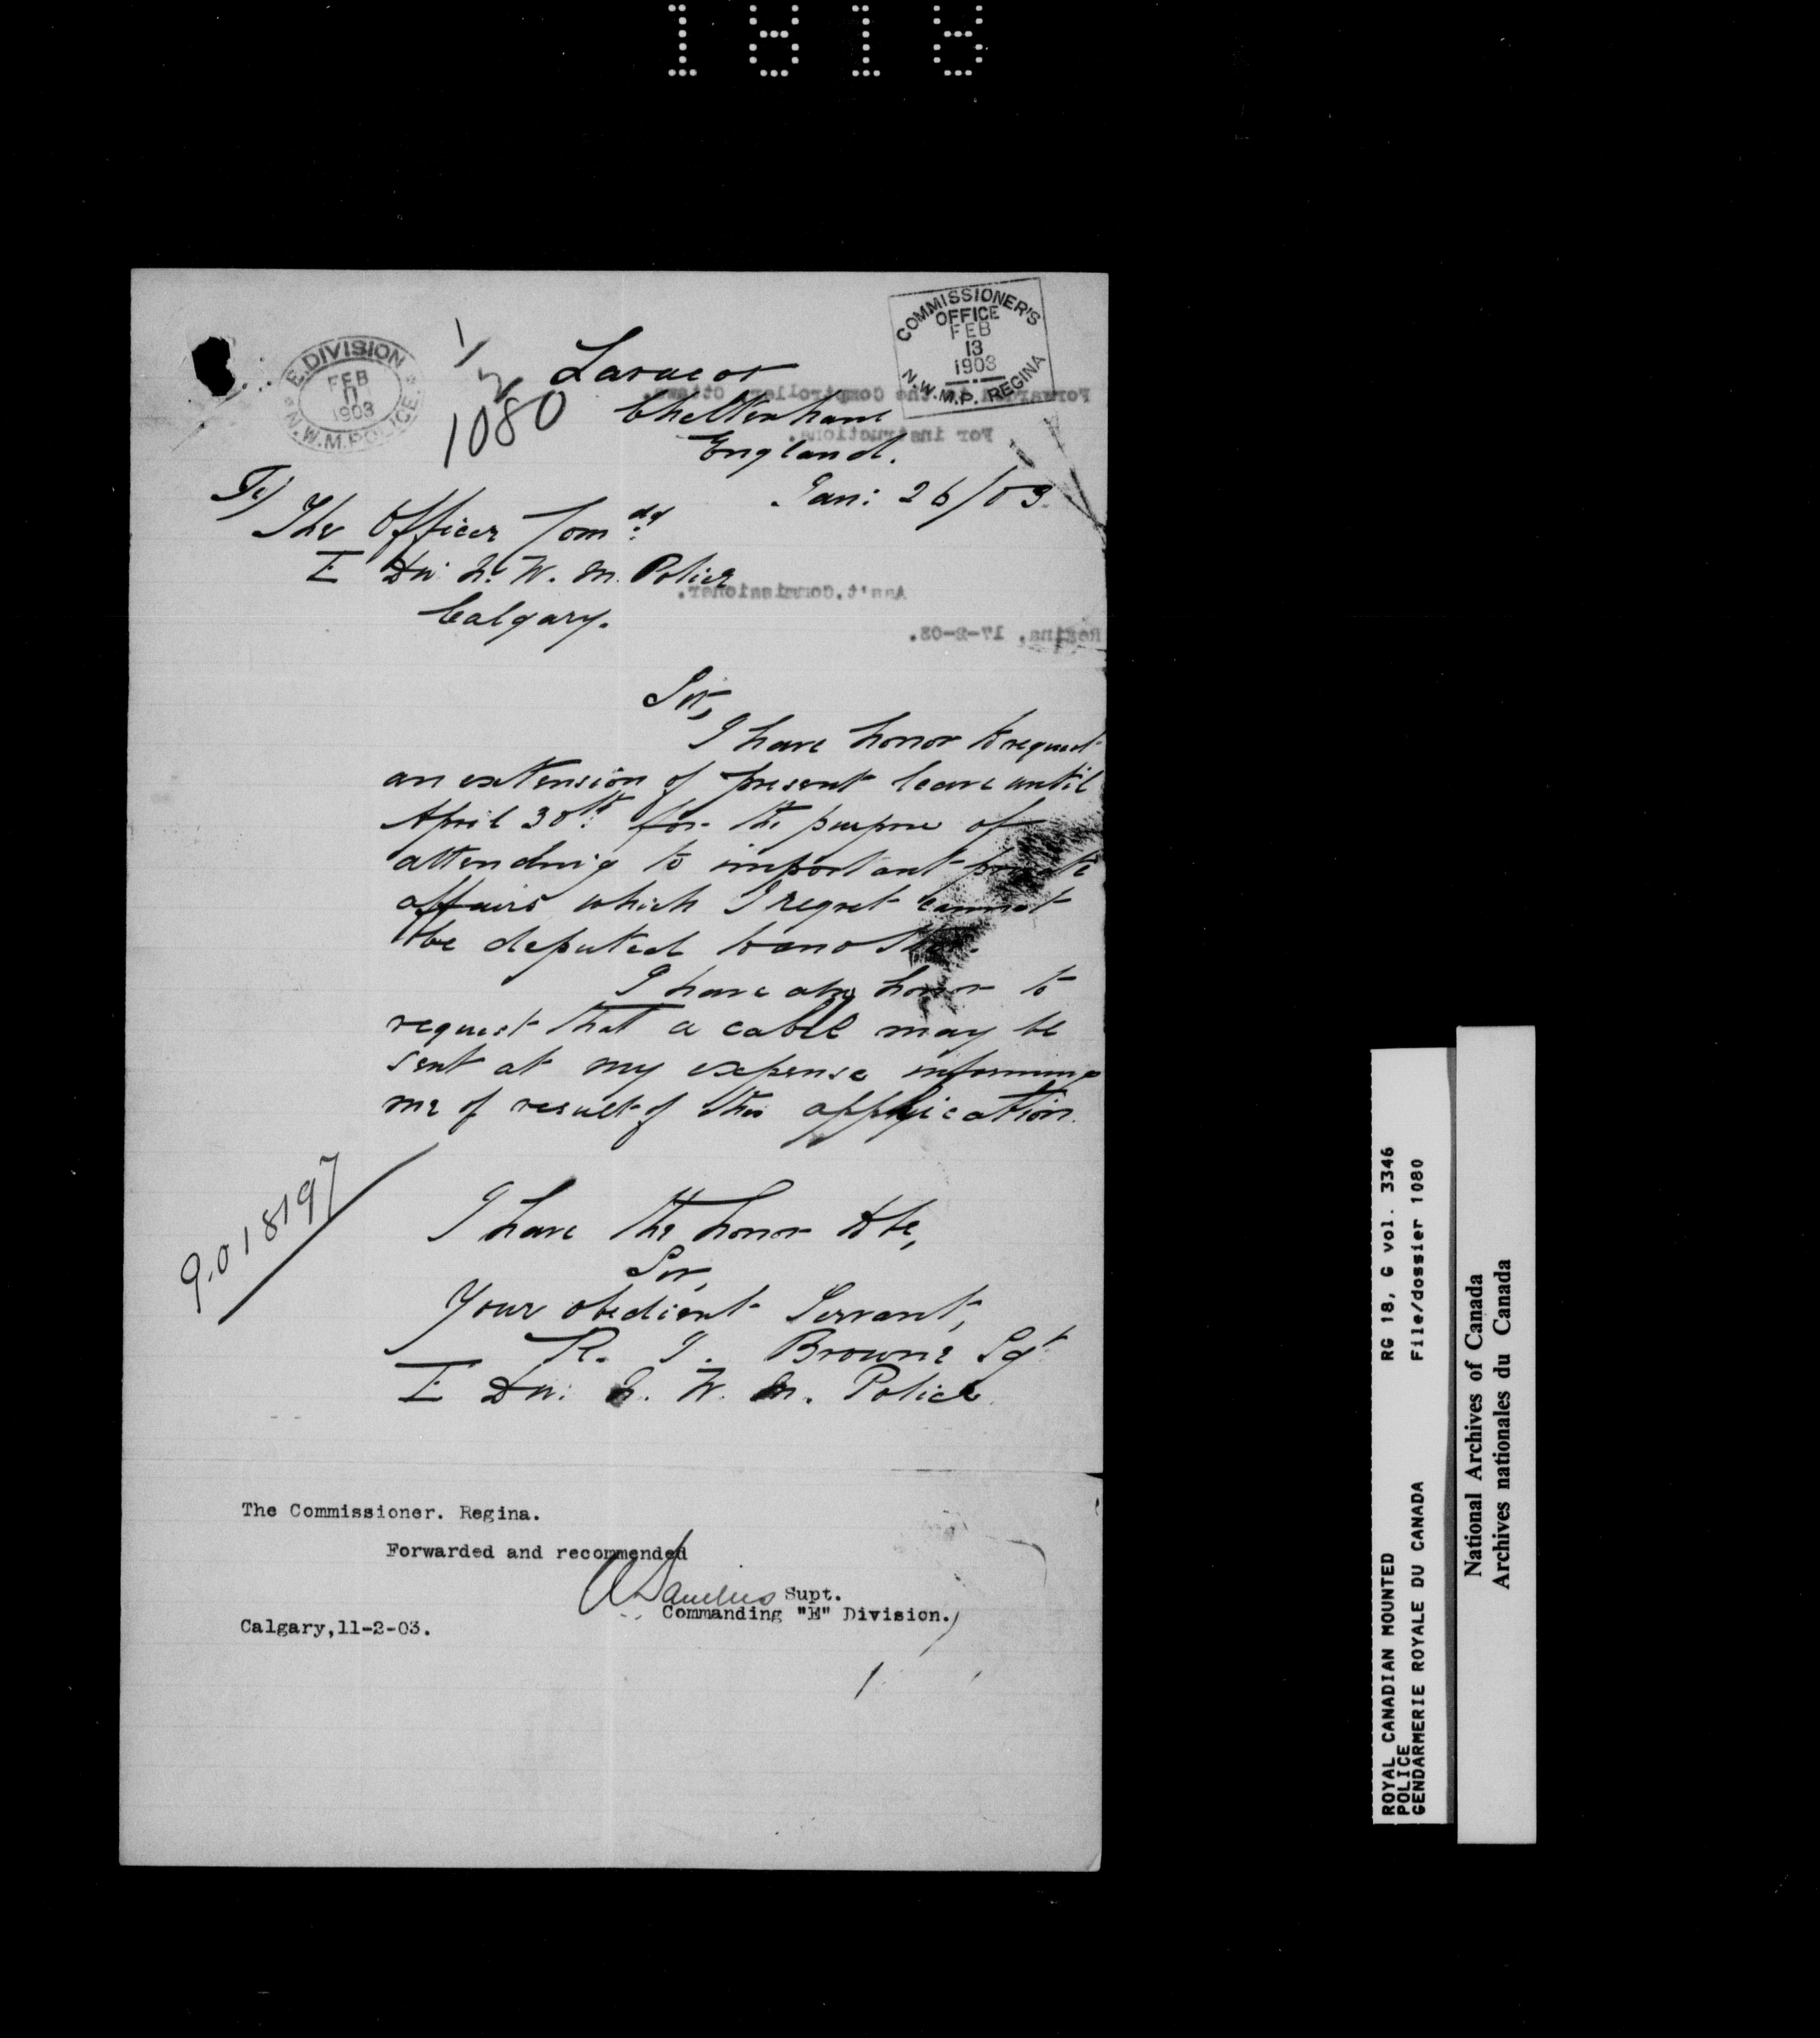 1818
E. DIVISION
FEB
11
1903
N.W.M. POLICE.
COMMISSIONER'S
OFFICE
FEB
13
1903
N.W.M.P. REGINA
1080
Cheltenham
England.
Jan: 26/03.
Forwarded to the Comptroller, Ottawa,
For instructions.
Ass't.Commissioner.
Regina, 17-2-03.
To)
The Officer Comdg
E Div: N. W. M. Police
Calgary.
Sir,
I have honor to request
an extension of present leave until
April 30th: for the purpose of
attending to important private
affairs which I regret cannot
be deputed to another.
I have also honor to
request that a cable may be
sent at my expense informing
me of result of this application.
I have the honor to be,
Sir,
Your obedient Servant,
R. J. Browne Sgt
E Div: N. W. M. Police
9.018197
The Commissioner. Regina.
Forwarded and recommended
Supt.
Commanding "E" Division.
Calgary,11-2-03.
ROYAL CANADIAN MOUNTED RG 18, G vol. 3346
POLICE
GENDARMERIE ROYALE DU CANADA File/dossier 1080
National Archives of Canada
Archives nationales du Canada